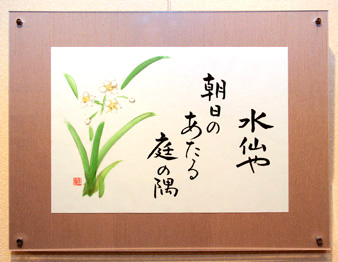 水仙や
朝日の
あたる
庭の隅